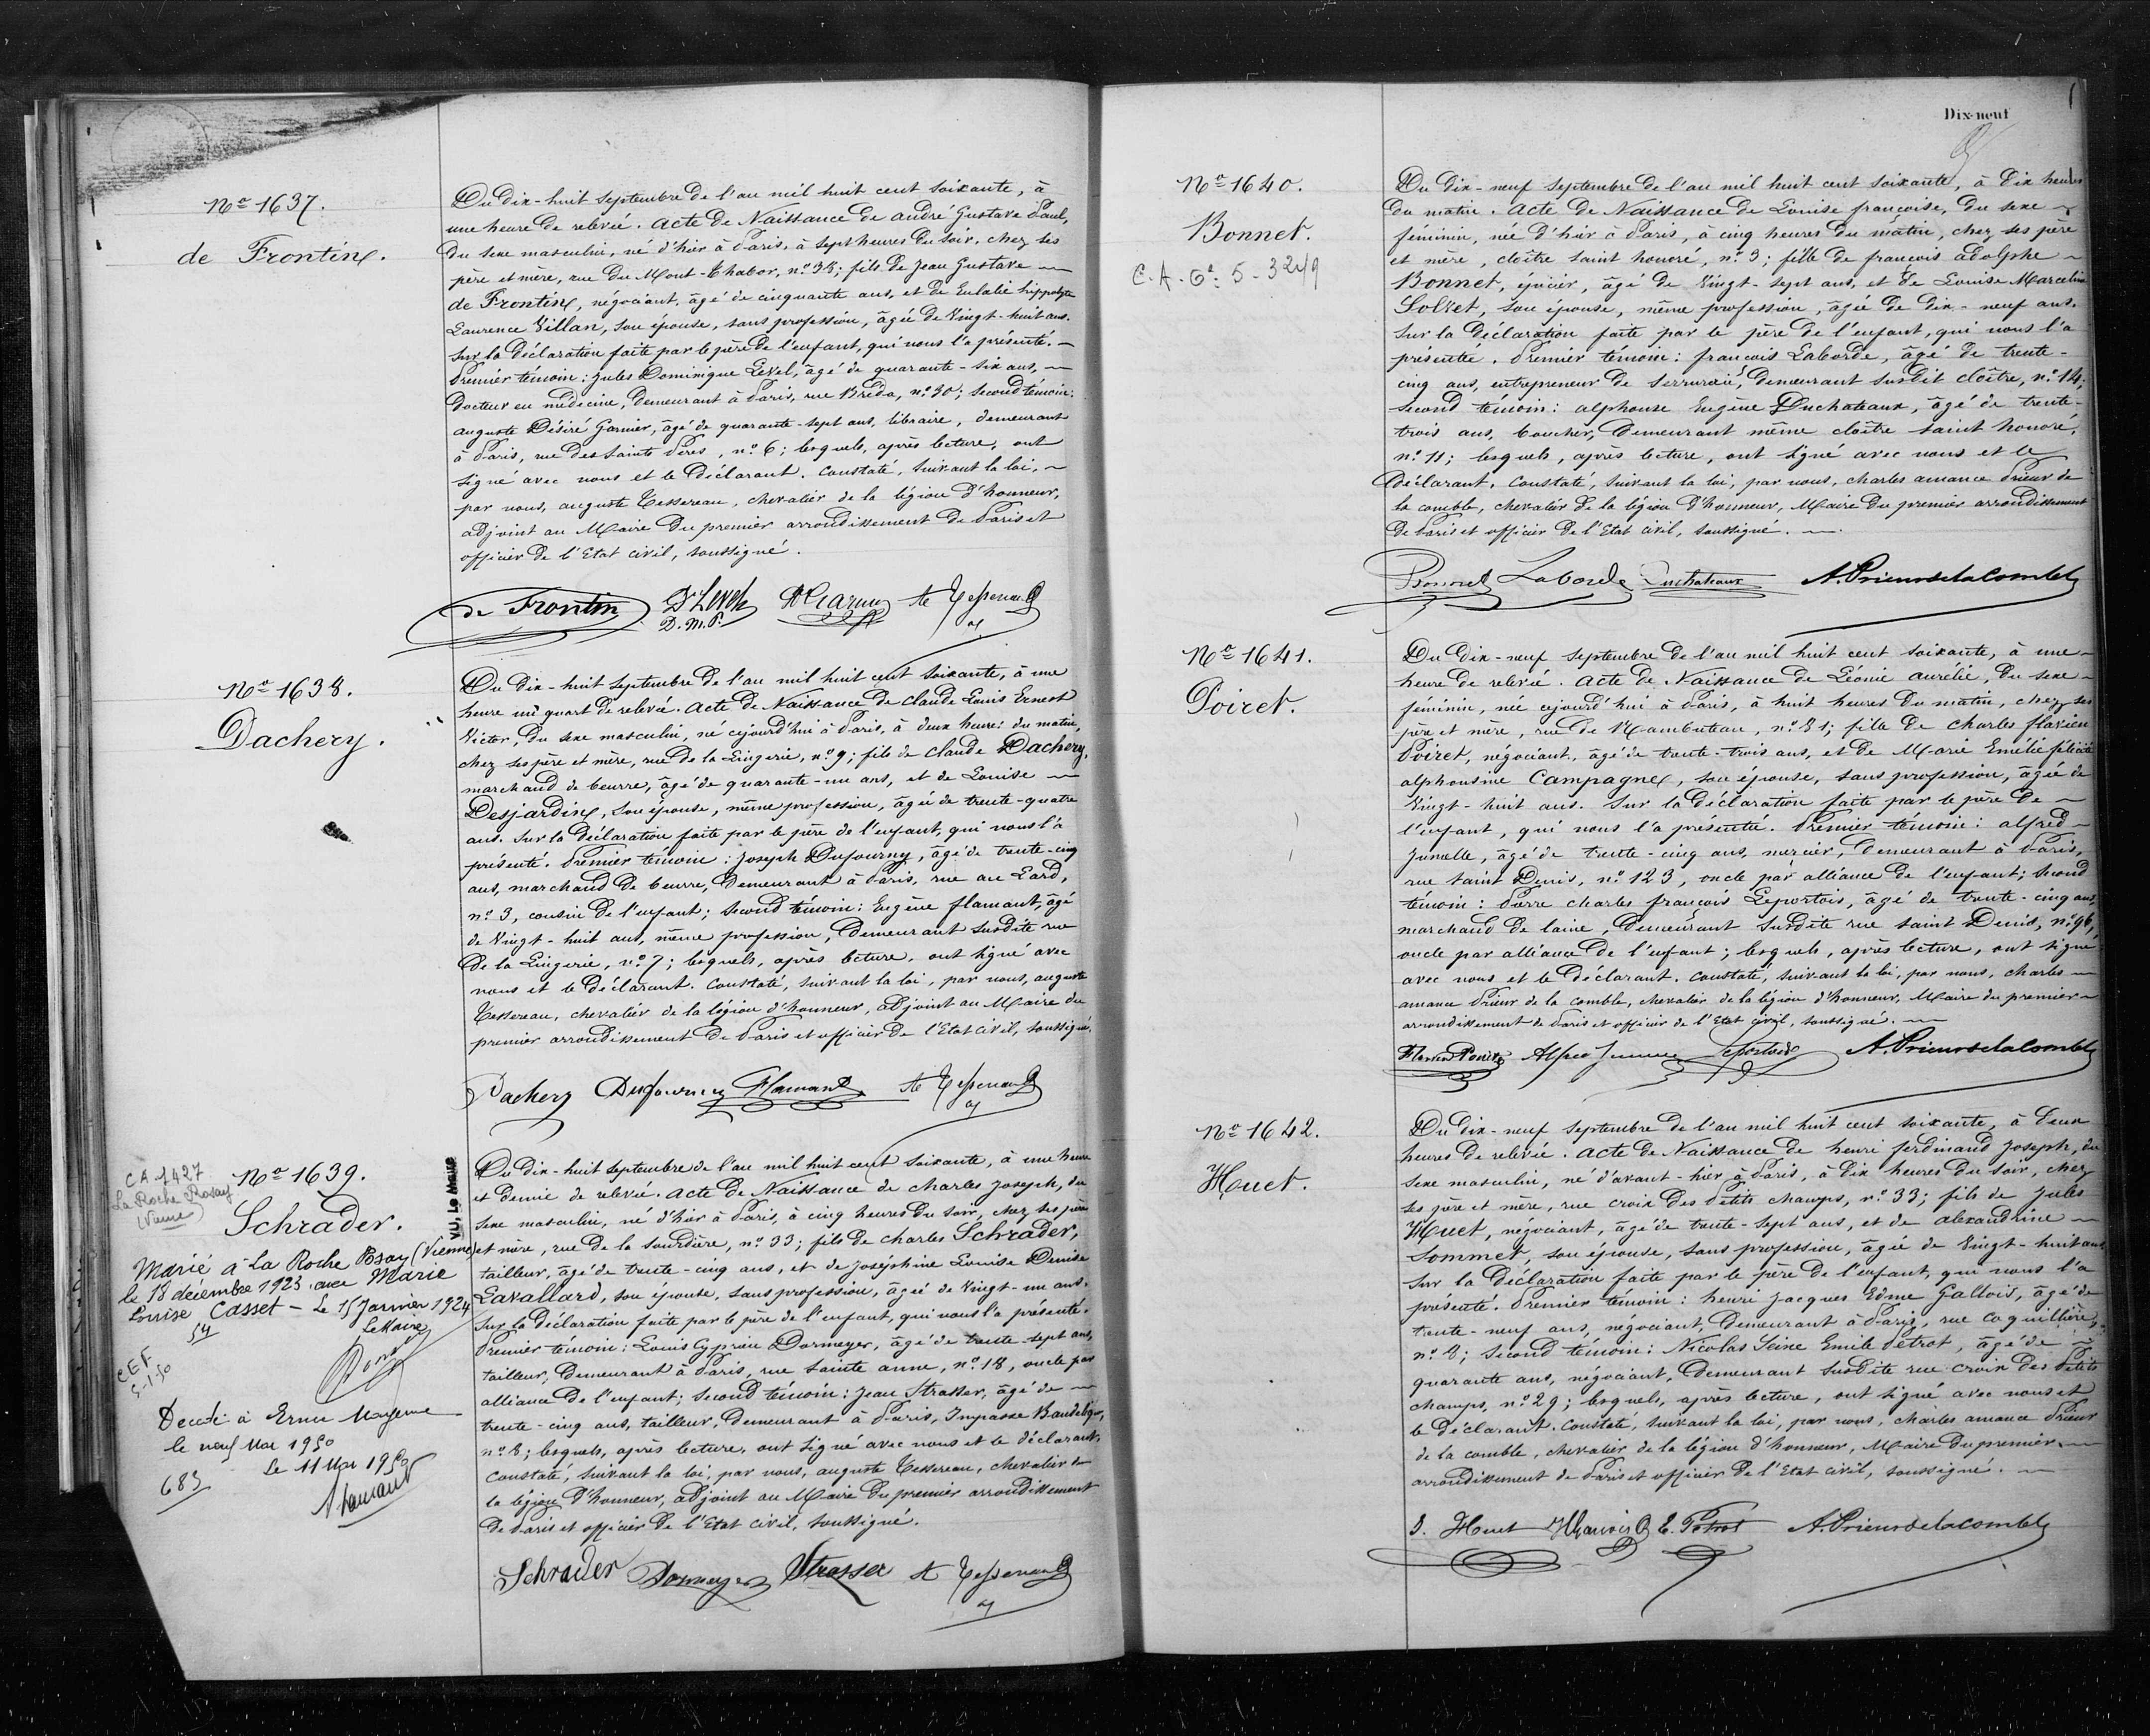 Nº 1637.
de Frontin.
Du dix-huit septembre de l'an mil huit cent soixante, à
une heure de relevée. Acte de Naissance de andré Gustave Paul,
du sexe masculin, né d'hier à Paris, à sept heures du soir, chez ses
père et mère, rue du Mont-Thabor, nº 38; fils de Jean Gustave
de Frontin, négociant, âgé de cinquante ans, et de Eulalie hippolyte
Laurence Villan, son épouse, sans profession, âgée de Vingt-huit ans.
Sur la déclaration faite par le père de l'enfant, qui nous l'a présenté.
Premier témoin: Jules Dominique Level, âgé de quarante-six ans,
Docteur en médecine, demeurant à Paris, rue Bréda, nº 30; second témoin:
auguste Désiré Garnier, âgé de quarante-sept ans, libraire, demeurant
à Paris, rue des Saints Pères, nº 6; lesquels, après lecture, ont
signé avec nous et le Déclarant. Constaté, suivant la loi,
par nous, auguste Tessereau, chevalier de la légion d'honneur,
adjoint au Maire du premier arrondissement de Paris et
officier de l'Etat civil, soussigné.
de Frontin Dr Level D. M. P.
Nº 1638.
Dachery.
Du dix-huit septembre de l'an mil huit cent soixante, à une
heure un quart de relevée. Acte de Naissance de Claude Louis Ernest
Victor, du sexe masculin, né cejourd'hui à Paris, à deux heures du matin,
chez ses père et mère, rue de la Lingerie, nº 9; fils de Claude Dachery,
marchand de beurre, âgé de quarante-un ans, et de Louise
Desjardins, son épouse, même profession, âgée de trente-quatre
ans. Sur la déclaration faite par le père de l'enfant, qui nous l'a
présenté. Premier témoin: Joseph Dufourny, âgé de trente-cinq
ans, marchand de beurre, demeurant à Paris, rue au Lard,
nº 3, cousin de l'enfant; second témoin: Eugène flamant, âgé
de Vingt-huit ans, même profession, demeurant susdite rue
de la Lingerie, nº 7; lesquels, après lecture, ont signé avec
nous et le déclarant. Constaté, suivant la loi, par nous, auguste
Tessereau, chevalier de la légion d'honneur, adjoint au Maire du
premier arrondissement de Paris et officier de l'Etat civil, soussigné.
Dachery Dufourny Flamant
CA 1427
La Roche Posay
(Vienne)
Nº 1639.
Schrader.
VU, Le Maire
Marié à La Roche Posay (Vienne)
le 18 décembre 1923 avec Marie
Louise Casset - Le 15 Janvier 1924
Le Maire
54
CEF
5-1-50
Décédé à Ernée Mayenne
le neuf Mai 1950
Le 11 Mai 1950
683
Du dix-huit septembre de l'an mil huit cent soixante, à une heure
et demie de relevée. Acte de Naissance de Charles Joseph, du
sexe masculin, né d'hier à Paris, à cinq heures du soir, chez ses père
et mère, rue de la Sourdière, nº 33; fils de Charles Schrader,
tailleur, âgé de trente-cinq ans, et de Joséphine Louise Denise
Lavallard, son épouse, sans profession, âgée de Vingt-un ans.
Sur la déclaration faite par le père de l'enfant, qui nous l'a présenté.
Premier témoin: Louis Cyprien Dormeyer, âgé de trente-sept ans,
tailleur, demeurant à Paris, rue Sainte anne, nº 18, oncle par
alliance de l'enfant; second témoin: Jean Strasser, âgé de
trente-cinq ans, tailleur, demeurant à Paris, Impasse
nº 8; lesquels, après lecture, ont signé avec nous et le déclarant.
Constaté, suivant la loi, par nous, auguste Tessereau, chevalier de
la légion d'honneur, adjoint au Maire du premier arrondissement
de Paris et officier de l'Etat civil, soussigné.
Schrader Dormeyer Strasser
Dix-neuf
Nº 1640.
Bonnet.
C.A. Gº: 5-3249
Du dix-neuf septembre de l'an mil huit cent soixante, à dix heures
du matin. Acte de Naissance de Louise françoise, du sexe
féminin, née d'hier à Paris, à cinq heures du matin, chez ses père
et mère, cloître saint honoré, nº 3; fille de françois adolphe
Bonnet, épicier, âgé de Vingt-sept ans, et de Louise Marceline
Solvet, son épouse, même profession, âgée de dix-neuf ans.
Sur la déclaration faite par le père de l'enfant, qui nous l'a
présentée. Premier témoin: françois Laborde, âgé de trente-
cinq ans, entrepreneur de serrurerie, demeurant susdit cloître, nº 14;
second témoin: alphonse Eugène Duchateaux, âgé de trente-
trois ans, boucher, demeurant même cloître saint honoré,
nº 11; lesquels, après lecture, ont signé avec nous et le
déclarant. Constaté, suivant la loi, par nous, charles amance Prieur de
la comble, chevalier de la légion d'honneur, Maire du premier arrondissement
de Paris et officier de l'Etat civil, soussigné.
Bonnet Laborde Duchateaux A. Prieur de la Comble
Nº 1641.
Poiret.
Du dix-neuf septembre de l'an mil huit cent soixante, à une
heure de relevée. Acte de Naissance de Léonie aurélie, du sexe
féminin, née cejourd'hui à Paris, à huit heures du matin, chez ses
père et mère, rue de Rambuteau, nº 81; fille de Charles flavien
Poiret, négociant, âgé de trente-trois ans, et de Marie Emélie félicité
alphonsine Campagne, son épouse, sans profession, âgée de
Vingt-huit ans. Sur la déclaration faite par le père de
l'enfant, qui nous l'a présentée. Premier témoin: alfred
Jumelle, âgé de trente-cinq ans, mercier, demeurant à Paris,
rue saint Denis, nº 123, oncle par alliance de l'enfant; second
témoin: Pierre charles françois Leportois, âgé de trente-cinq ans,
marchand de laine, demeurant susdite rue saint Denis, nº 96,
oncle par alliance de l'enfant; lesquels, après lecture, ont signé
avec nous et le déclarant. Constaté, suivant la loi, par nous, charles
amance Prieur de la comble, chevalier de la légion d'honneur, Maire du premier
arrondissement de Paris et officier de l'Etat civil, soussigné.
Flavien Poiret Alfred Jumelle Leportois A. Prieur de la Comble
Nº 1642.
Huet.
Du dix-neuf septembre de l'an mil huit cent soixante, à deux
heures de relevée. Acte de Naissance de henri ferdinand Joseph, du
sexe masculin, né d'avant-hier à Paris, à dix heures du soir, chez
ses père et mère, rue croix des Petits champs, nº 33; fils de Jules
Huet, négociant, âgé de trente-sept ans, et de alexandrine
Sommet, son épouse, sans profession, âgée de Vingt-huit ans.
Sur la déclaration faite par le père de l'enfant, qui nous l'a
présenté. Premier témoin: henri Jacques Edme Gallois, âgé de
trente-neuf ans, négociant, demeurant à Paris, rue coquillière,
nº 8; second témoin: Nicolas Seine Emile Petrot, âgé de
quarante ans, négociant, demeurant susdite rue croix des Petits
champs, nº 29; lesquels, après lecture, ont signé avec nous et
le déclarant. Constaté, suivant la loi, par nous, charles amance Prieur
de la comble, chevalier de la légion d'honneur, Maire du premier
arrondissement de Paris et officier de l'Etat civil, soussigné.
J. Huet E. Petrot A. Prieur de la Comble